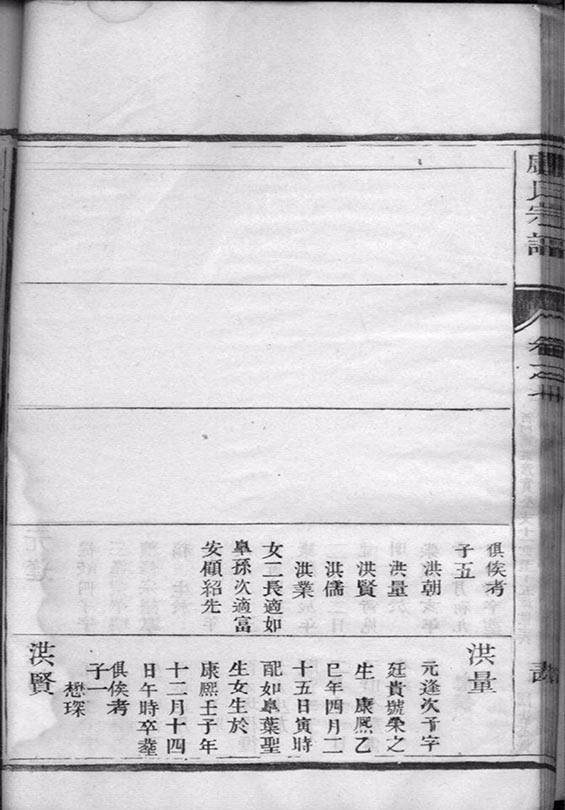 氏宗譜
編之卅
俱俟考
子五
洪朝
洪量
洪賢
洪儒
洪業
女二長適如
臯孫次適富
安顧紹先
洪量
元逢次子字
廷貴號榮之
生康熙乙
巳年四月二
十五日寅時
配如臯葉聖
生女生於
康熙壬子年
十二月十四
日午時卒塟
俱俟考
子一
懋琛
洪賢